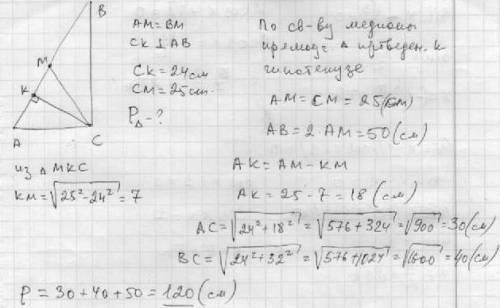 B
M
K
A
C
AM = BM
CK ⊥ AB
CK = 24 см
CM = 25 см.
P△ - ?
По св-ву медианы
прямоуг △ провед. к
гипотенузе
AM = CM = 25 (см)
AB = 2 · AM = 50 (см)
из △ MKC
KM = √25² - 24² = 7
AK = AM - KM
AK = 25 - 7 = 18 (см)
AC = √24² + 18² = √576 + 324 = √900 = 30 (см)
BC = √24² + 32² = √576 + 1024 = √1600 = 40 (см)
P = 30 + 40 + 50 = 120 (см)